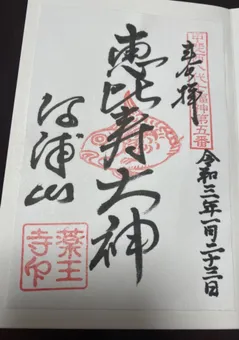 奉拝
甲斐西八代七福神第五番
令和三年一月二十三日
恵比寿大神
河浦山
薬王
寺印